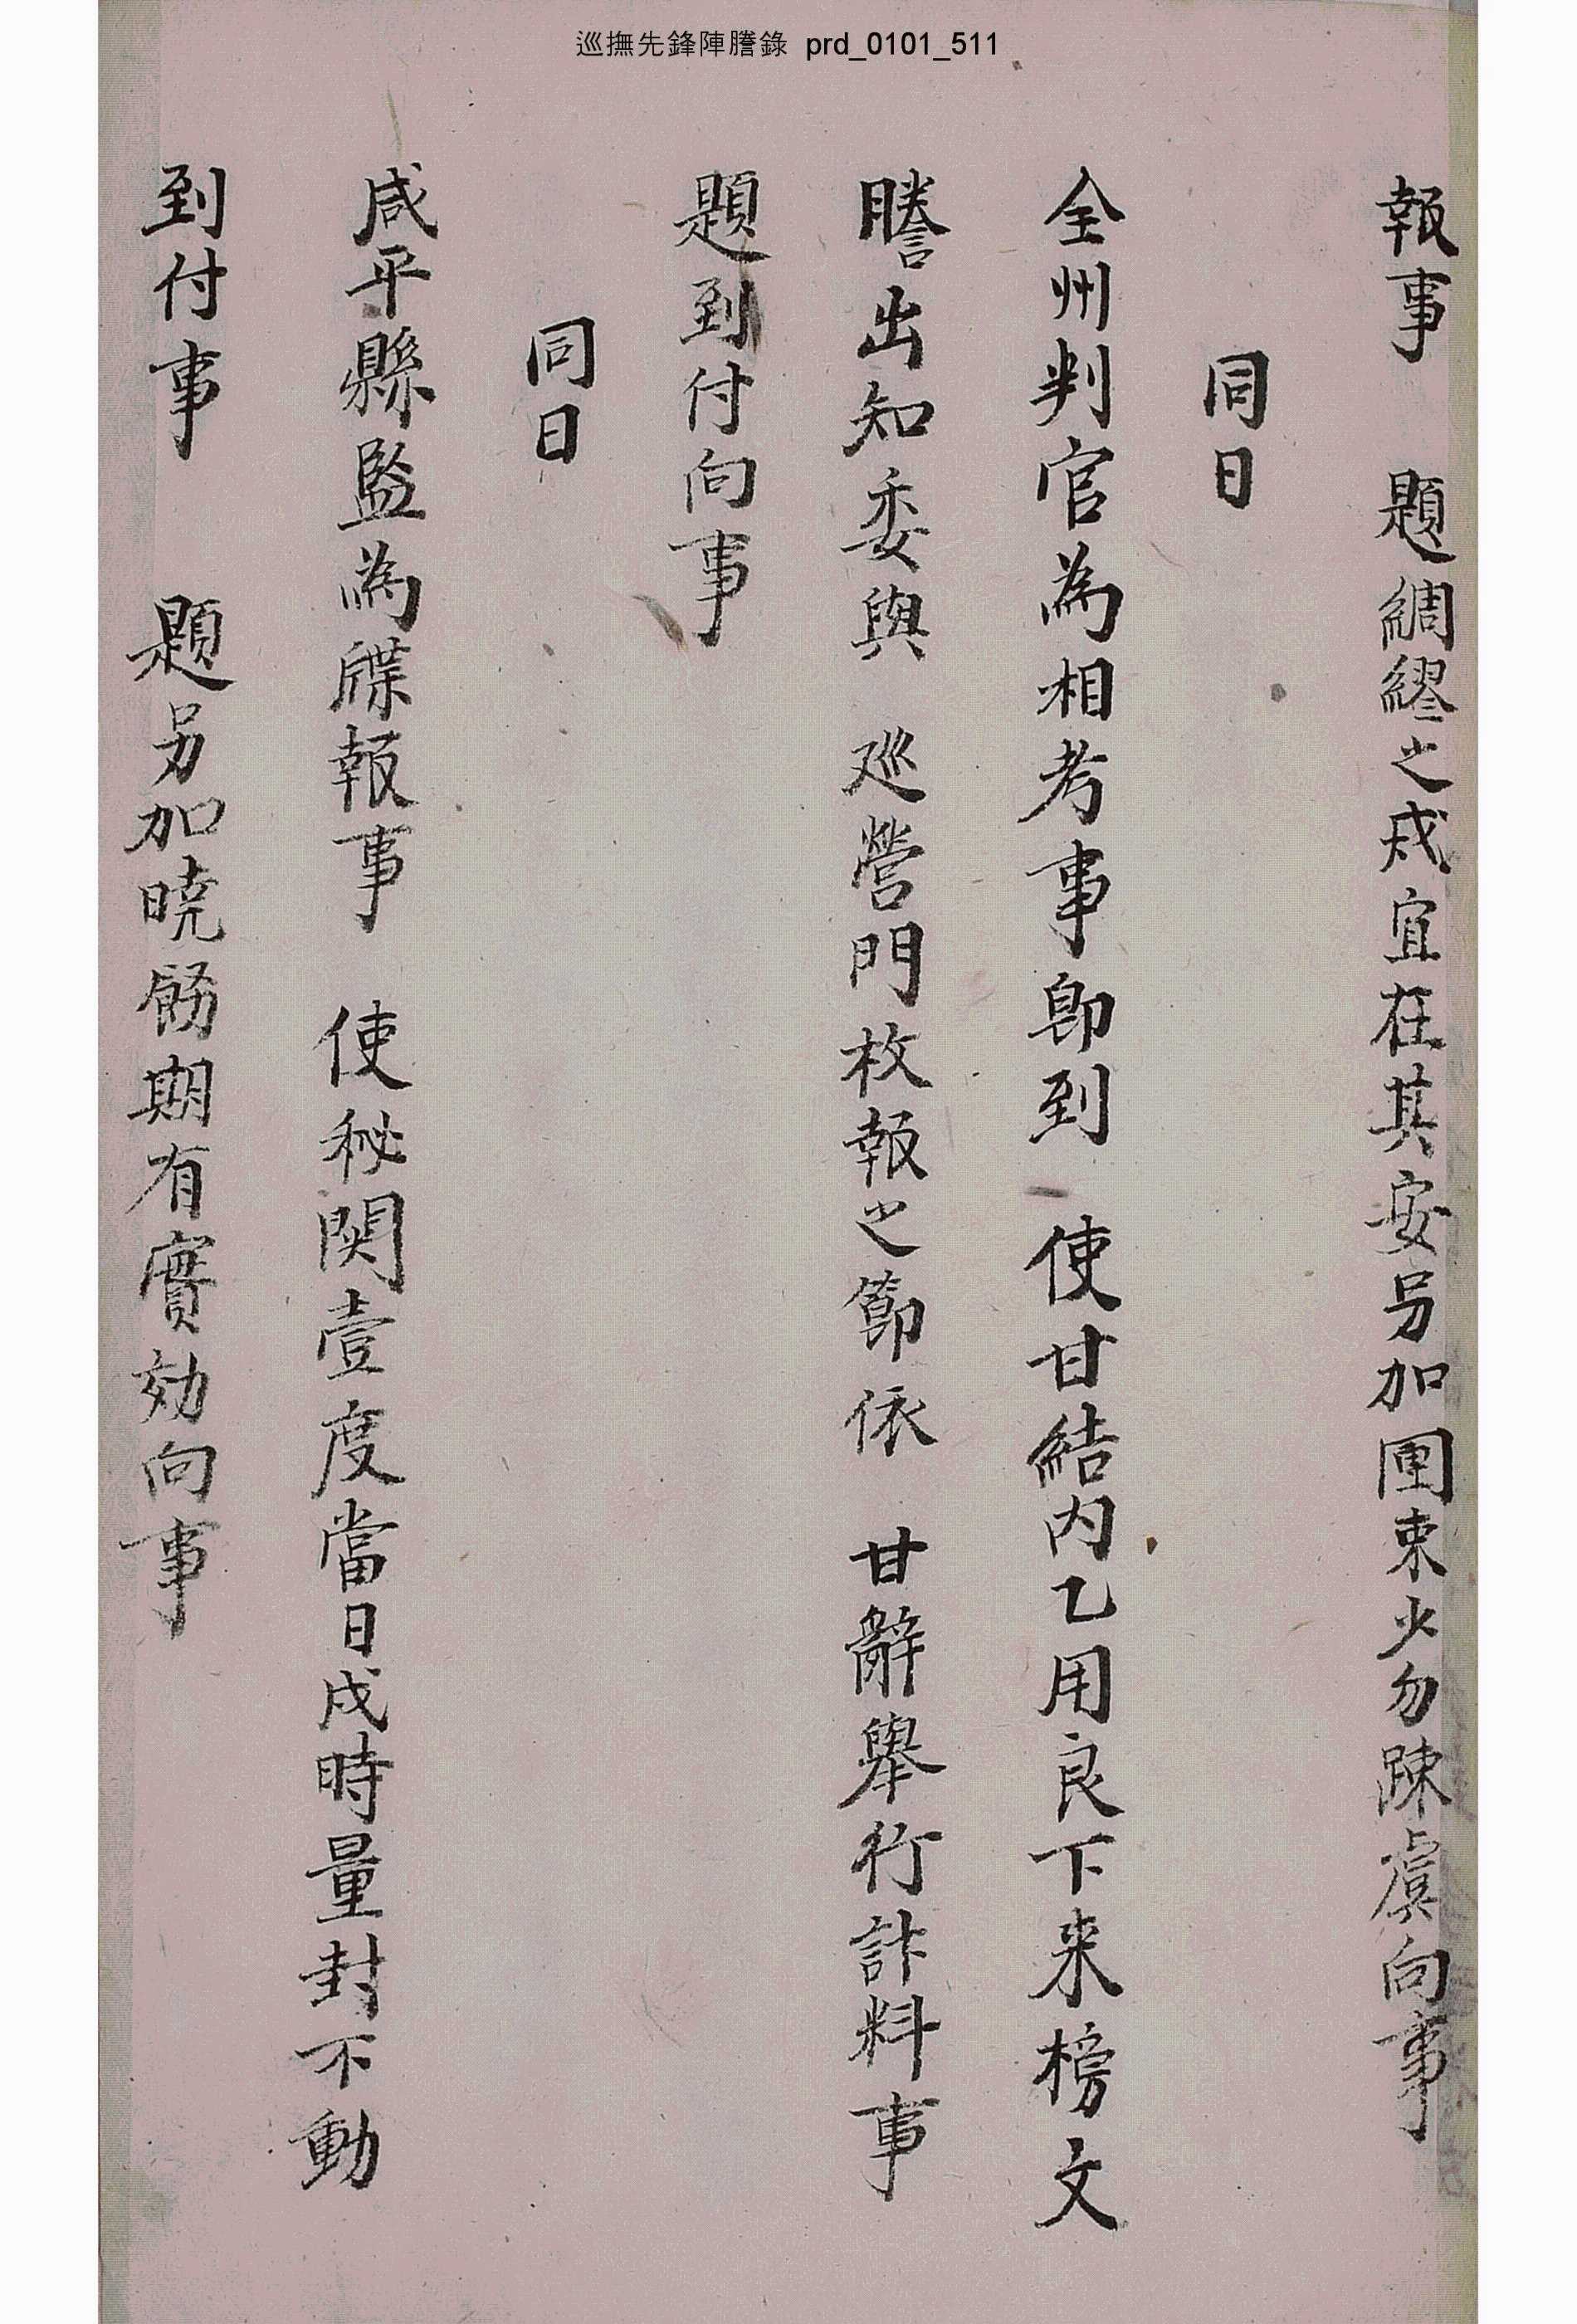 巡撫先鋒陣謄錄 prd_0101_511
報事 題綢繆之戒宜在其安另加團束少勿踈虞向事
同日
全州判官為相考事卽到 使甘結內乙用良下来榜文
謄出知委與 廵營門枚報之節依 甘辭擧行計料事
題到付向事
同日
咸平縣監為牒報事 使秘関壹度當日戌時量封不動
到付事 題另加曉飭期有實効向事